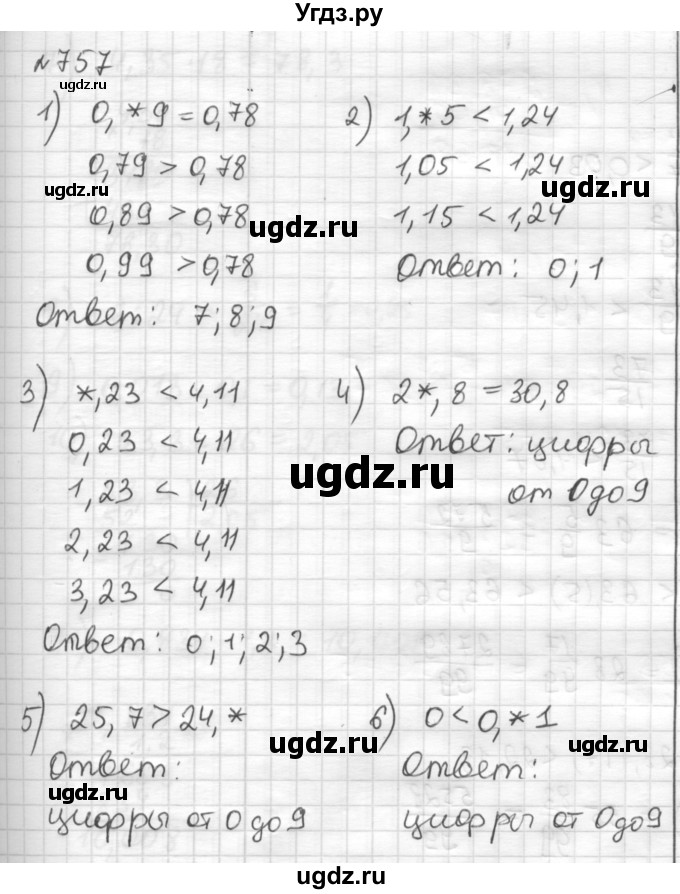 Угдз.ру
№757
ugdz.ru
1) 0,*9 = 0,78
0,79 > 0,78
ugdz.ru
0,89 > 0,78
ugdz.ru
0,99 > 0,78
Ответ: 7; 8; 9
2) 1,*5 < 1,24
1,05 < 1,24
ugdz.ru
1,15 < 1,24
ugdz.ru
Ответ: 0; 1
3) *,23 < 4,11
0,23 < 4,11
1,23 < 4,11
2,23 < 4,11
3,23 < 4,11
Ответ: 0; 1; 2; 3
4) 2*,8 = 30,8
Ответ: цифры
ugdz.ru
от 0 до 9
5) 25,7 > 24,*
ugdz.ru
Ответ:
ugdz.ru
цифры от 0 до 9
6) 0 < 0,*1
ugdz.ru
Ответ:
цифры от 0 до 9
ugdz.ru